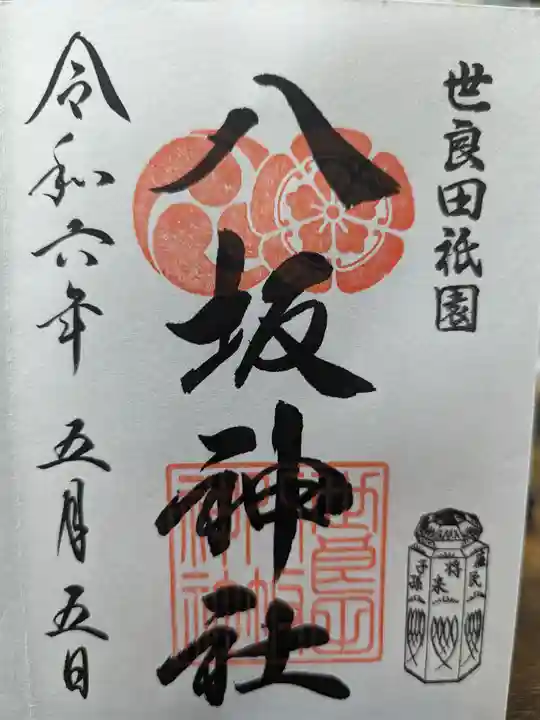 世良田祇園
八坂神社
令和六年 五月五日
蘇民
将来
子孫